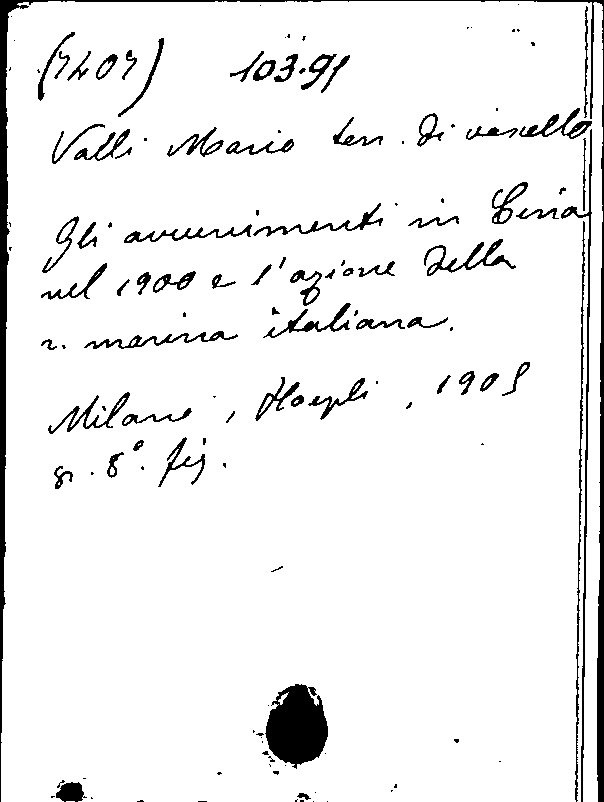 (7407) 103.91
Valli Mario ten. di vascello
Gli avvenimenti in Cina
nel 1900 e l'azione della
r. marina italiana.
Milano, Hoepli, 1905
gr. 8°. fig.